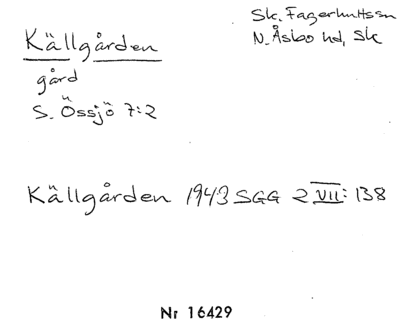 Källgården
Sk. Fagerhultssn
N. Åsbo hd, Sk
gård
S. Össjö 7:2
Källgården 1943 SGG 2 VII: 138
Nr 16429